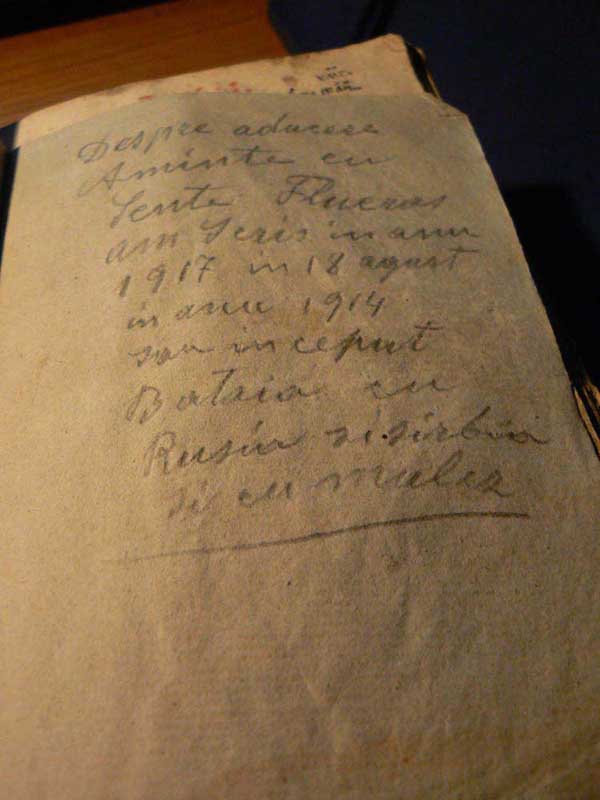 Despre aducere
Aminte eu
Sente Flueras
am scris in anu
1917 in 18 agust
in anu 1914
sau inceput
Bataia cu
Rusia si sirbia
si cu mulez